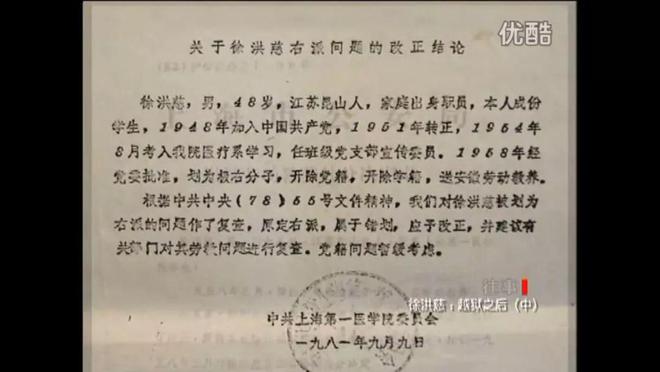 优酷
关于徐洪慈右派问题的改正结论
徐洪慈，男，48岁，江苏昆山人，家庭出身职员，本人成份
学生，1948年加入中国共产党，1951年转正，1954年
8月考入我院医疗系学习，任班级党支部宣传委员。1958年经
党委批准，划为极右分子，开除党籍，开除学籍，送安徽劳动教养。
根据中共中央（78）55号文件精神，我们对徐洪慈被划为
右派的问题作了复查，原定右派，属于错划，应予改正，并建议有
关部门对其劳教问题进行复查。党籍问题暂缓考虑。
往事
徐洪慈：越狱之后（中）
中共上海第一医学院委员会
一九八一年九月九日